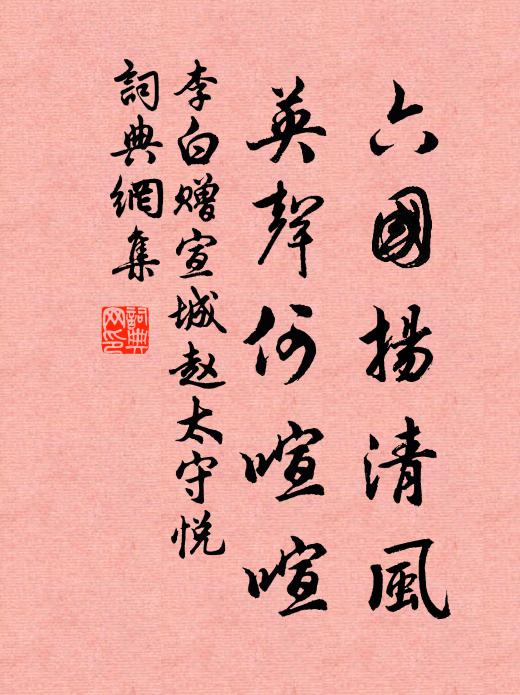 六國揚清風
英聲何喧喧
李白赠宣城赵太守悦
詞典網集
詞典网印